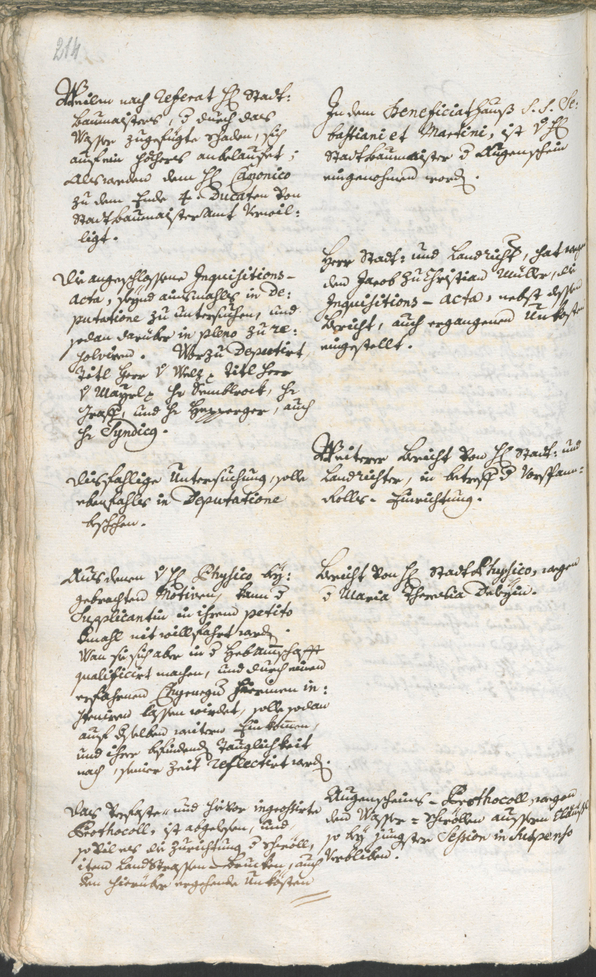 214
Weilen nach Referat H. Stadt:
baumeisters, d durch das
Wasser zugefügte schaden, sich
auf ein höheres anbelauffet;
Als werden dem H. Canonico
zu dem Ende 4. Ducaten von
Stadtbaumeister Amt verwil:
ligt.
Die angeschlossene Inquisitions-
Acta, seynd ainsmahls in De:
putatione zu untersuchen, und
sodan darüber in pleno zu re:
solviren. Worzu Deputirt
Titl Herr v Welz, Titl Herr
v Mayrl, Hr Sembleock, Hr
Graff, und Hr Hepperger, auch
Hr Syndicg.
Diesfahlige Untersuchung, solle
ebenfahls in Deputatione
beschehen.
Aus denen v H. Physico bey:
gebrachten Motiven, kann d
Supplicantin in ihrem petito
Einmahl nit willfahrt werden.
Wan sie sich aber in d Hebammschafft
qualificirt machen, und durch einen
erfahrnen Chyrurgum hierinen in:
struiren lassen wirdet, solle sodan
auf dselben weiters Einkommen,
und ihrer befündend Tauglichkeit
nach, seiner Zeit reflectirt werden.
Das verfaste und hievor ingrossirte
Prothocoll, ist abgelesen, und
so vil es die Zurichtung d schwöll,
item Landstrassen-Brucken, auch
den hierüber ergehende Unkosten
In dem Beneficiathauß S. S. Se:
bastiani et Martini, ist v H.
Stadtbaumeister d Augenschein
eingenohmen worden.
Herr Stadt: und Landricht, hat wegen
den Jacob zu Christian Müller, die
Inquisitions-Acta, nebst dessen
Bericht, auch ergangenen Unkosten
eingestellt.
Weiterer Bericht von H. Stadt: und
Landrichter, in betreff d Vorspann-
Rolls-Einrichtung.
Bericht von H. Stadt Physico, wegen
d Maria Theresia
Augenscheins-Prothocoll, wegen
den Wasser-schwöllen aussern
so bey jüngster Session in Suspenso
verbliben.